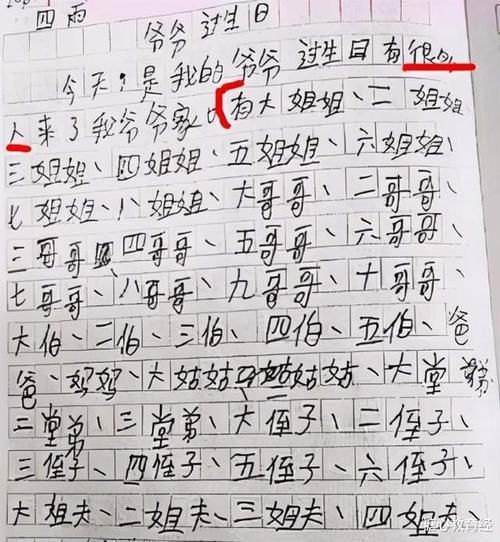 四雨
爷爷过生日
今天,是我的爷爷过生日有很多
人来了我爷爷家,有大姐姐、二姐姐
三姐姐、四姐姐、五姐姐、六姐姐、
七姐姐、八姐姐、大哥哥、二哥哥、
三哥哥、四哥哥、五哥哥、六哥哥、
七哥哥、八哥哥、九哥哥、十哥哥、
大伯、二伯、三伯、四伯、五伯、爸
爸、妈妈、大姑姑、姑姑、大堂弟
二堂弟、三堂弟、大侄子、二侄子、
三侄子、四侄子、五侄子、六侄子、
大姐夫、二姐夫、三姐夫、四姐夫、
心教育经